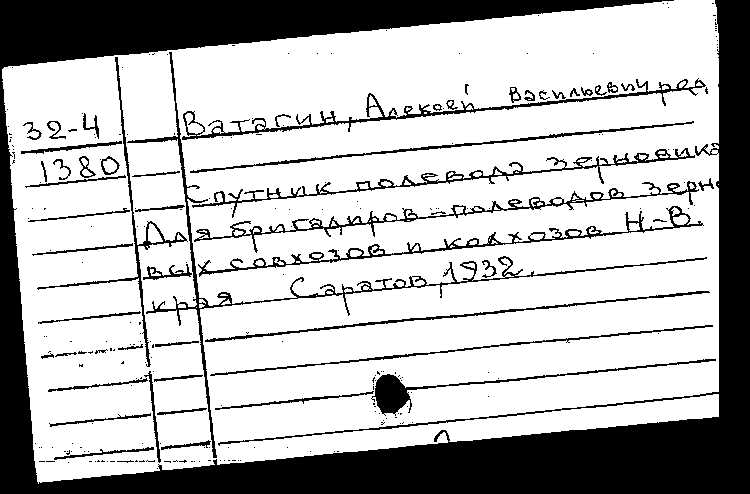 32-4 Ватагин, Алексей Васильевич ред.
1380
Спутник полевода зерновика
Для бригадиров-полеводов зерно
вых совхозов и колхозов Н.-В.
края Саратов, 1932.